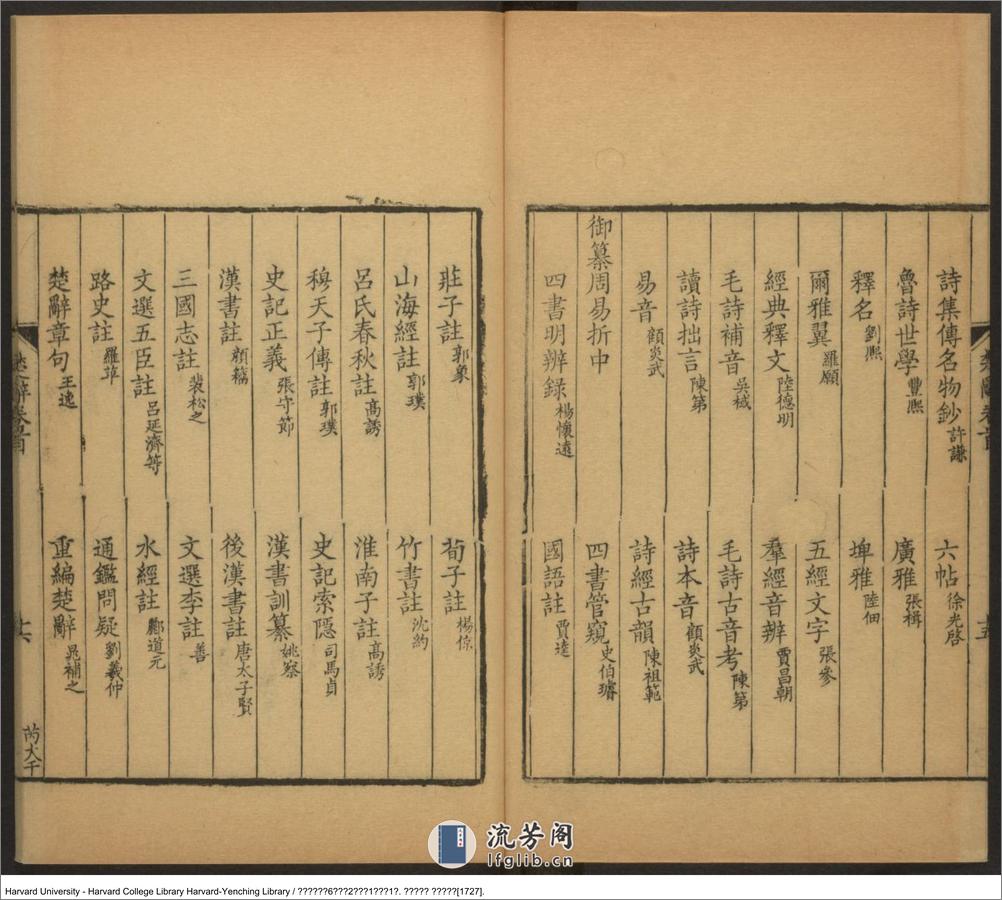 詩集傳名物鈔 許謙
六帖 徐光啓
魯詩世學 豐熙
廣雅 張揖
釋名 劉熙
埤雅 陸佃
爾雅翼 羅願
五經文字 張參
經典釋文 陸德明
羣經音辨 賈昌朝
毛詩補音 吳棫
毛詩古音考 陳第
讀詩拙言 陳第
詩本音 顧炎武
易音 顧炎武
詩經古韻 陳祖範
御纂周易折中
四書管窺 史伯璿
四書明辨錄 楊懷遠
國語註 賈逵
莊子註 郭象
荀子註 楊倞
山海經註 郭璞
竹書註 沈約
呂氏春秋註 高誘
淮南子註 高誘
穆天子傳註 郭璞
史記索隱 司馬貞
史記正義 張守節
漢書訓纂 姚察
漢書註 顏籀
後漢書註 唐太子賢
三國志註 裴松之
文選李註 善
文選五臣註 呂延濟等
水經註 酈道元
路史註 羅苹
通鑑問疑 劉羲仲
楚辭章句 王逸
重編楚辭 晁補之
楚辭卷首
十五
楚辭卷首
十六
芮大千
流芳阁
lfglib.cn
Harvard University - Harvard College Library Harvard-Yenching Library / ??????6???2???1???1?. ????? ?????[1727].